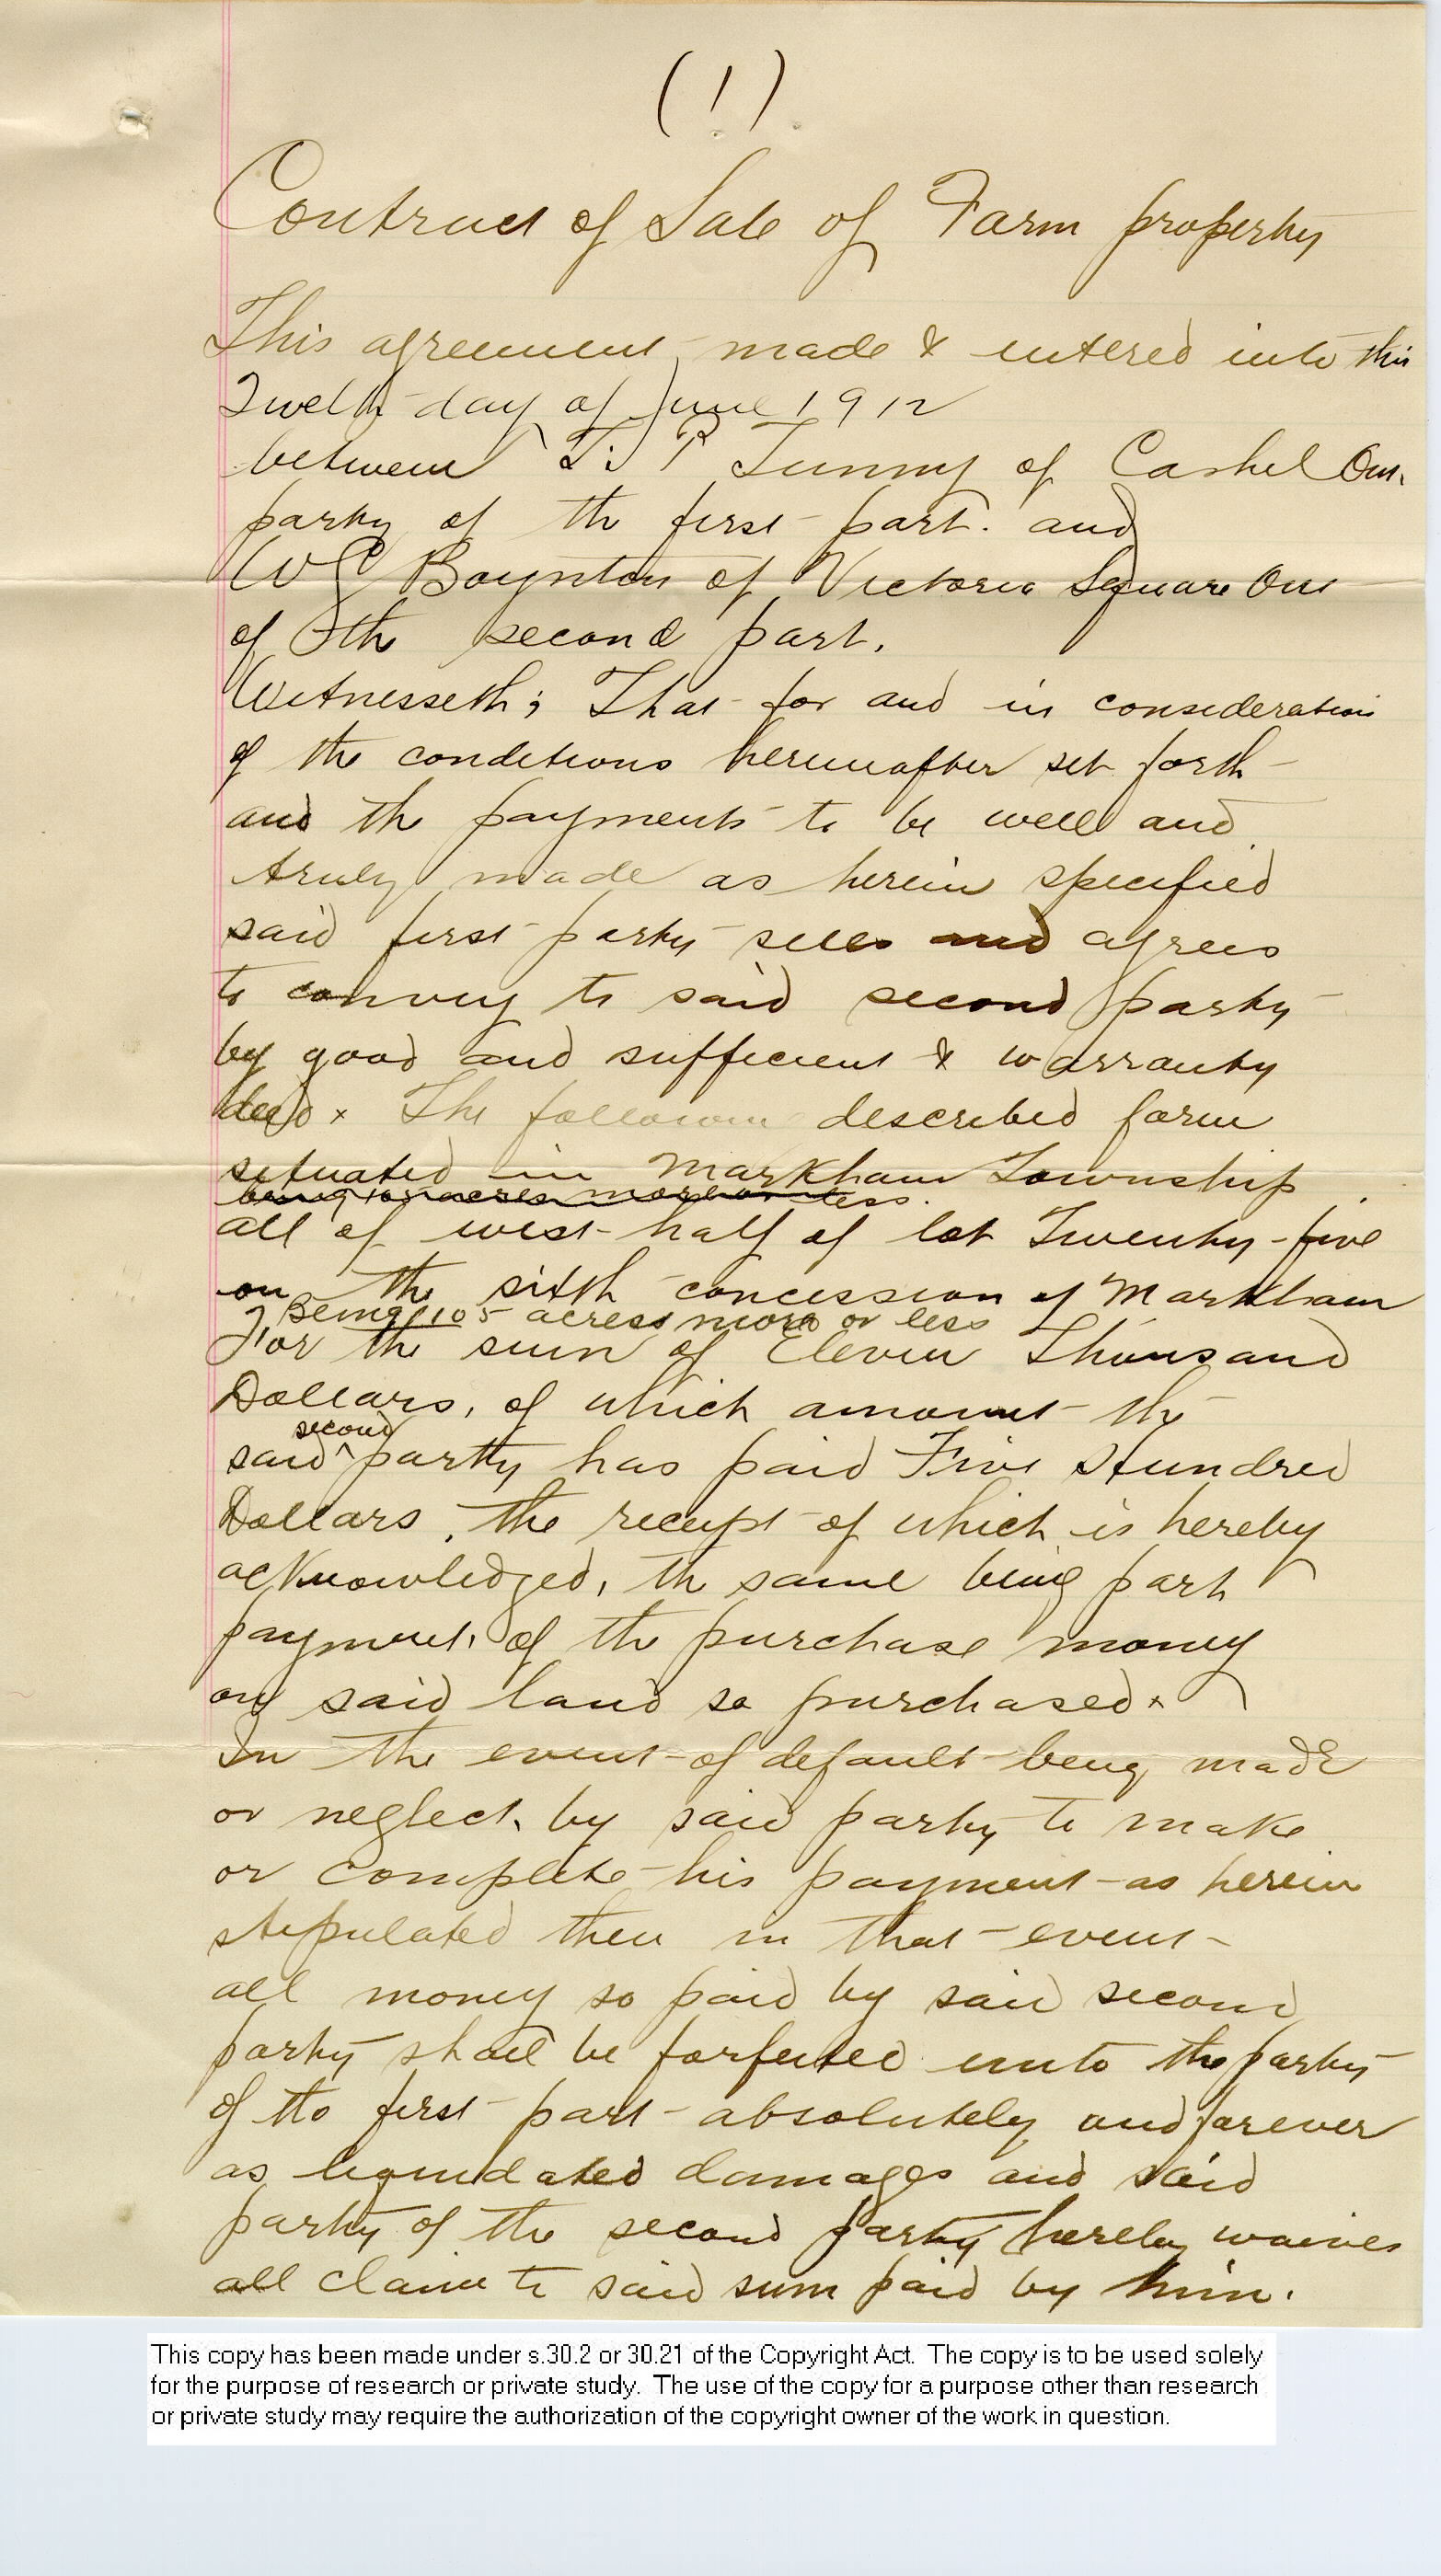 (1)
Contract of Sale of Farm property
This agreement made & entered into this
Twelfth day of June 1912
between T. P Tunny of Cashel Ont.
party of the first part. and
W C Boynton of Victoria Square Ont
of the second part.
Witnesseth; That for and in consideration
of the conditions hereinafter set forth
and the payments to be well and
truly made as herein specified
said first party sells and agrees
to convey to said second party
by good and sufficient & warranty
deed x The following described farm
situated in Markham Township
being 105 acres more or less.
all of west half of lot Twenty-five
on the sixth concession of Markham
Being 105 acres more or less
For the sum of Eleven Thousand
Dollars, of which amount the
second
said ^ party has paid Five Hundred
Dollars, the receipt of which is hereby
acknowledged, the same being part
payment of the purchase money
on said land so purchased x
In the event of default being made
or neglect by said party to make
or complete his payment as herein
stipulated then in that event
all money so paid by said second
party shall be forfeited unto the party
of the first part absolutely and forever
as liquidated damages and said
party of the second party hereby waives
all claim to said sum paid by him.
This copy has been made under s.30.2 or 30.21 of the Copyright Act. The copy is to be used solely
for the purpose of research or private study. The use of the copy for a purpose other than research
or private study may require the authorization of the copyright owner of the work in question.